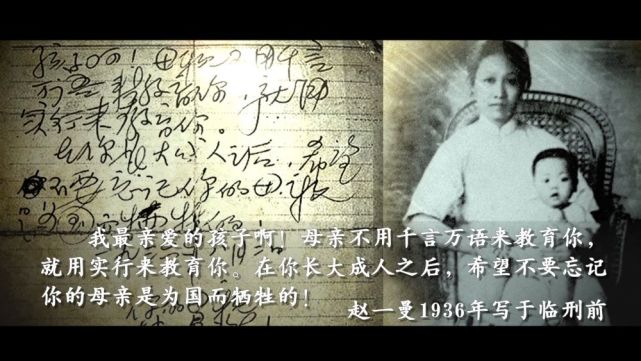 孩子啊！母亲不用千言
万语来教育你，就用
实行来教育你。
在你长大成人之后，希望
不要忘记你的母亲
我最亲爱的孩子啊！母亲不用千言万语来教育你，
就用实行来教育你。在你长大成人之后，希望不要忘记
你的母亲是为国而牺牲的！
赵一曼1936年写于临刑前